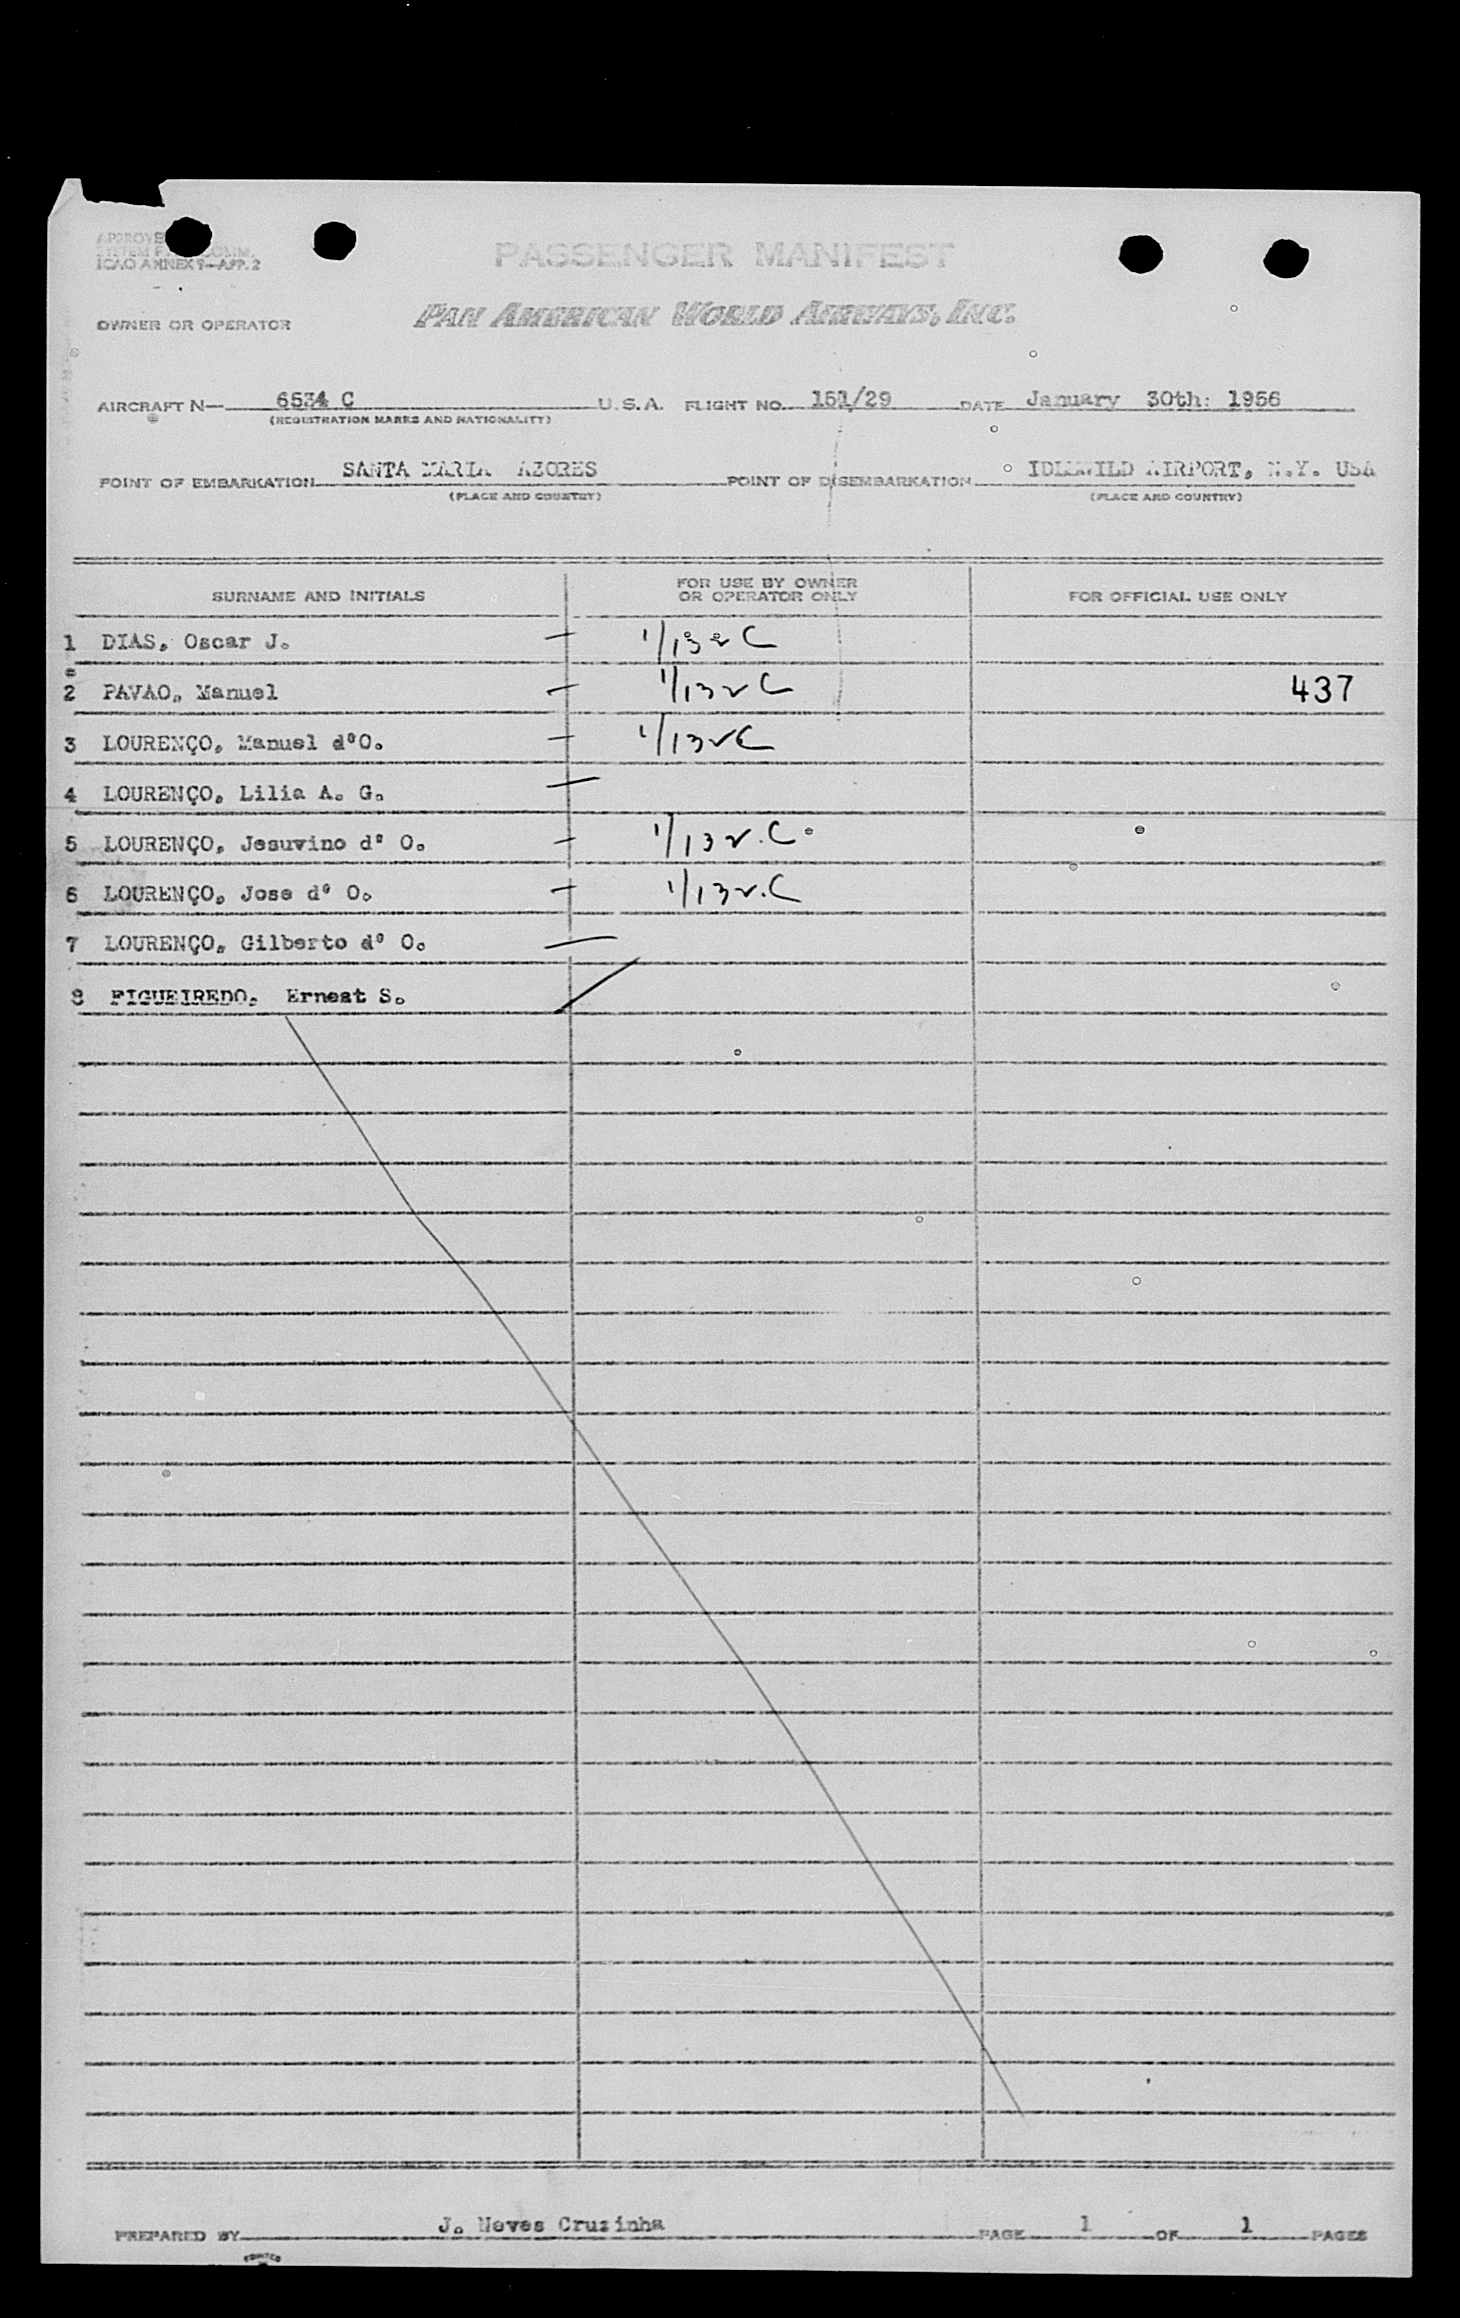 PASSENGER MANIFEST
ICAO ANNEX 9—APP. 2
OWNER OR OPERATOR PAN AMERICAN WORLD AIRWAYS, INC.
AIRCRAFT N— 6534 C U.S.A. FLIGHT NO. 151/29 DATE January 30th: 1956
(REGISTRATION MARKS AND NATIONALITY)
POINT OF EMBARKATION SANTA MARIA AZORES POINT OF DISEMBARKATION IDLEWILD AIRPORT, N.Y. USA
(PLACE AND COUNTRY) (PLACE AND COUNTRY)
SURNAME AND INITIALS FOR USE BY OWNER OR OPERATOR ONLY FOR OFFICIAL USE ONLY
1 DIAS, Oscar J. —
2 PAVAO, Manuel — 437
3 LOURENÇO, Manuel dºO. —
4 LOURENÇO, Lilia A. G. —
5 LOURENÇO, Jesuvino dº O. —
6 LOURENÇO, Jose dº O. —
7 LOURENÇO, Gilberto dº O. —
8 FIGUEIREDO, Ernest S.
PREPARED BY J. Neves Cruzinha PAGE 1 OF 1 PAGES